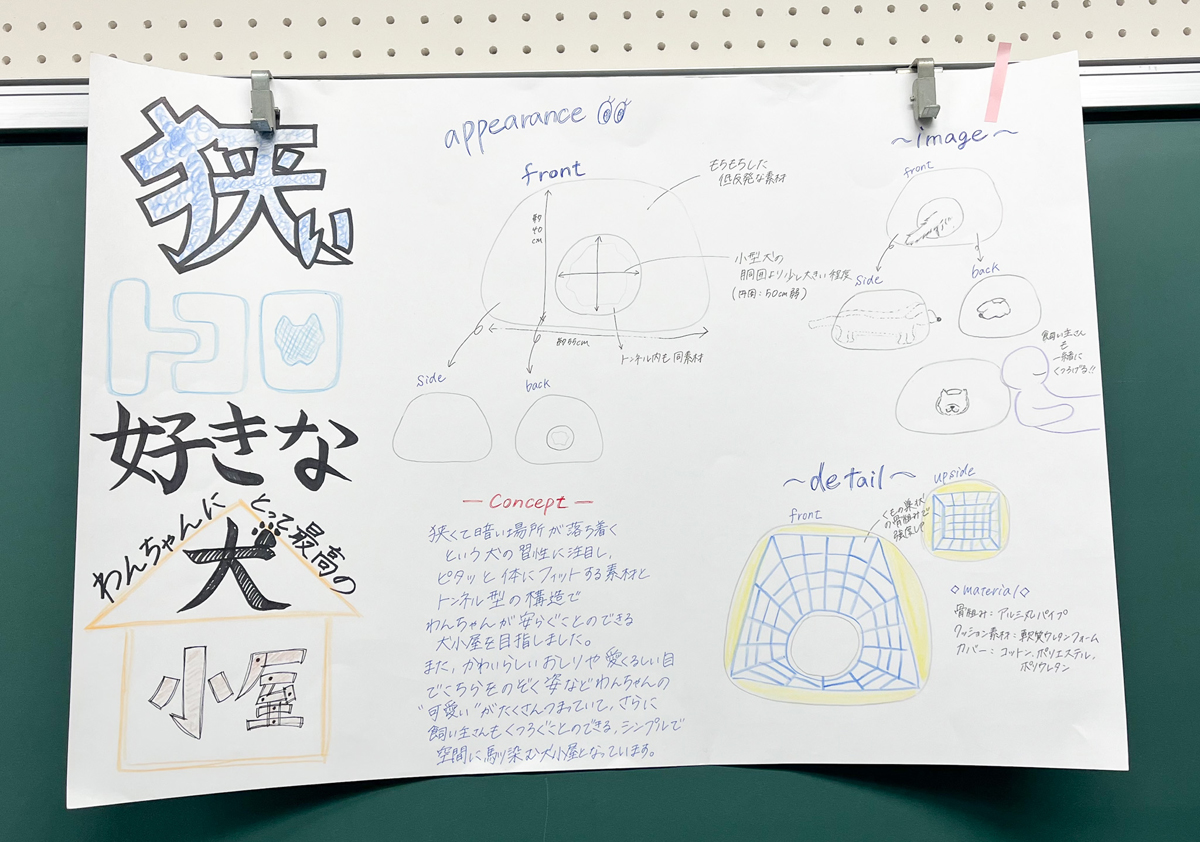 狭い
トコロ
好きな
わんちゃんにとって最高の
犬
小屋
appearance
front
もちもちした
低反発な素材
約40cm
小型犬の
胴囲より少し大きい程度
(円周:50cm弱)
約55cm
トンネル内も同素材
side
back
ーConceptー
狭くて暗い場所が落ち着く
という犬の習性に注目し、
ピタッと体にフィットする素材と
トンネル型の構造で
わんちゃんが安らぐことのできる
犬小屋を目指しました。
また、かわいらしいおしりや愛くるしい目
でこちらをのぞく姿などわんちゃんの
"可愛い"がたくさんつまっていて、さらに
飼い主さんもくつろぐことのできる、シンプルで
空間に馴染む犬小屋となっています。
～image～
front
side
back
飼い主さん
も
一緒に
くつろげる!!
～detail～
front
upside
くもの巣状
の骨組みで
強度UP
◇material◇
骨組み:アルミ丸パイプ
クッション素材:軟質ウレタンフォーム
カバー:コットン、ポリエステル、
ポリウレタン